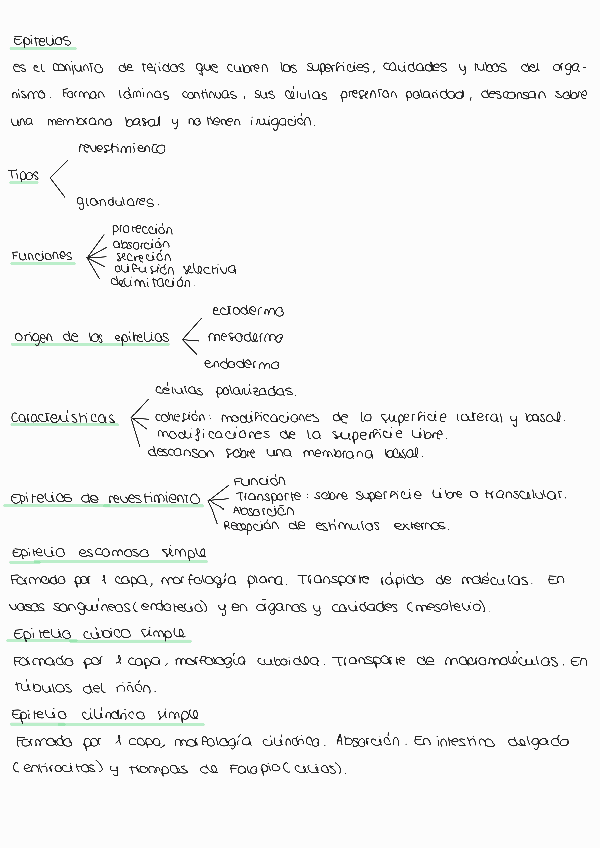 Epitelios
es el conjunto de tejidos que cubren las superficies, cavidades y tubos del orga-
nismo. Forman láminas continuas, sus células presentan polaridad, descansan sobre
una membrana basal y no tienen irrigación.
revestimiento
Tipos
glandulares.
protección
absorción
Funciones
secreción
difusión selectiva
delimitación.
ectodermo
origen de los epitelios
mesodermo
endodermo
células polarizadas.
Características
cohesión: modificaciones de la superficie lateral y basal.
modificaciones de la superficie libre.
descansan sobre una membrana basal.
Función
Epitelios de revestimiento
Transporte: sobre superficie libre o transcelular.
Absorción
Recepción de estímulos externos.
Epitelio escamoso simple
Formado por 1 capa, morfología plana. Transporte rápido de moléculas. En
vasos sanguíneos (endotelio) y en órganos y cavidades (mesotelio).
Epitelio cúbico simple
Formado por 1 capa, morfología cuboidea. Transporte de macromoléculas. En
túbulos del riñón.
Epitelio cilíndrico simple
Formado por 1 capa, morfología cilíndrica. Absorción. En intestino delgado
(entirocitos) y trompas de Falopio (cilios).